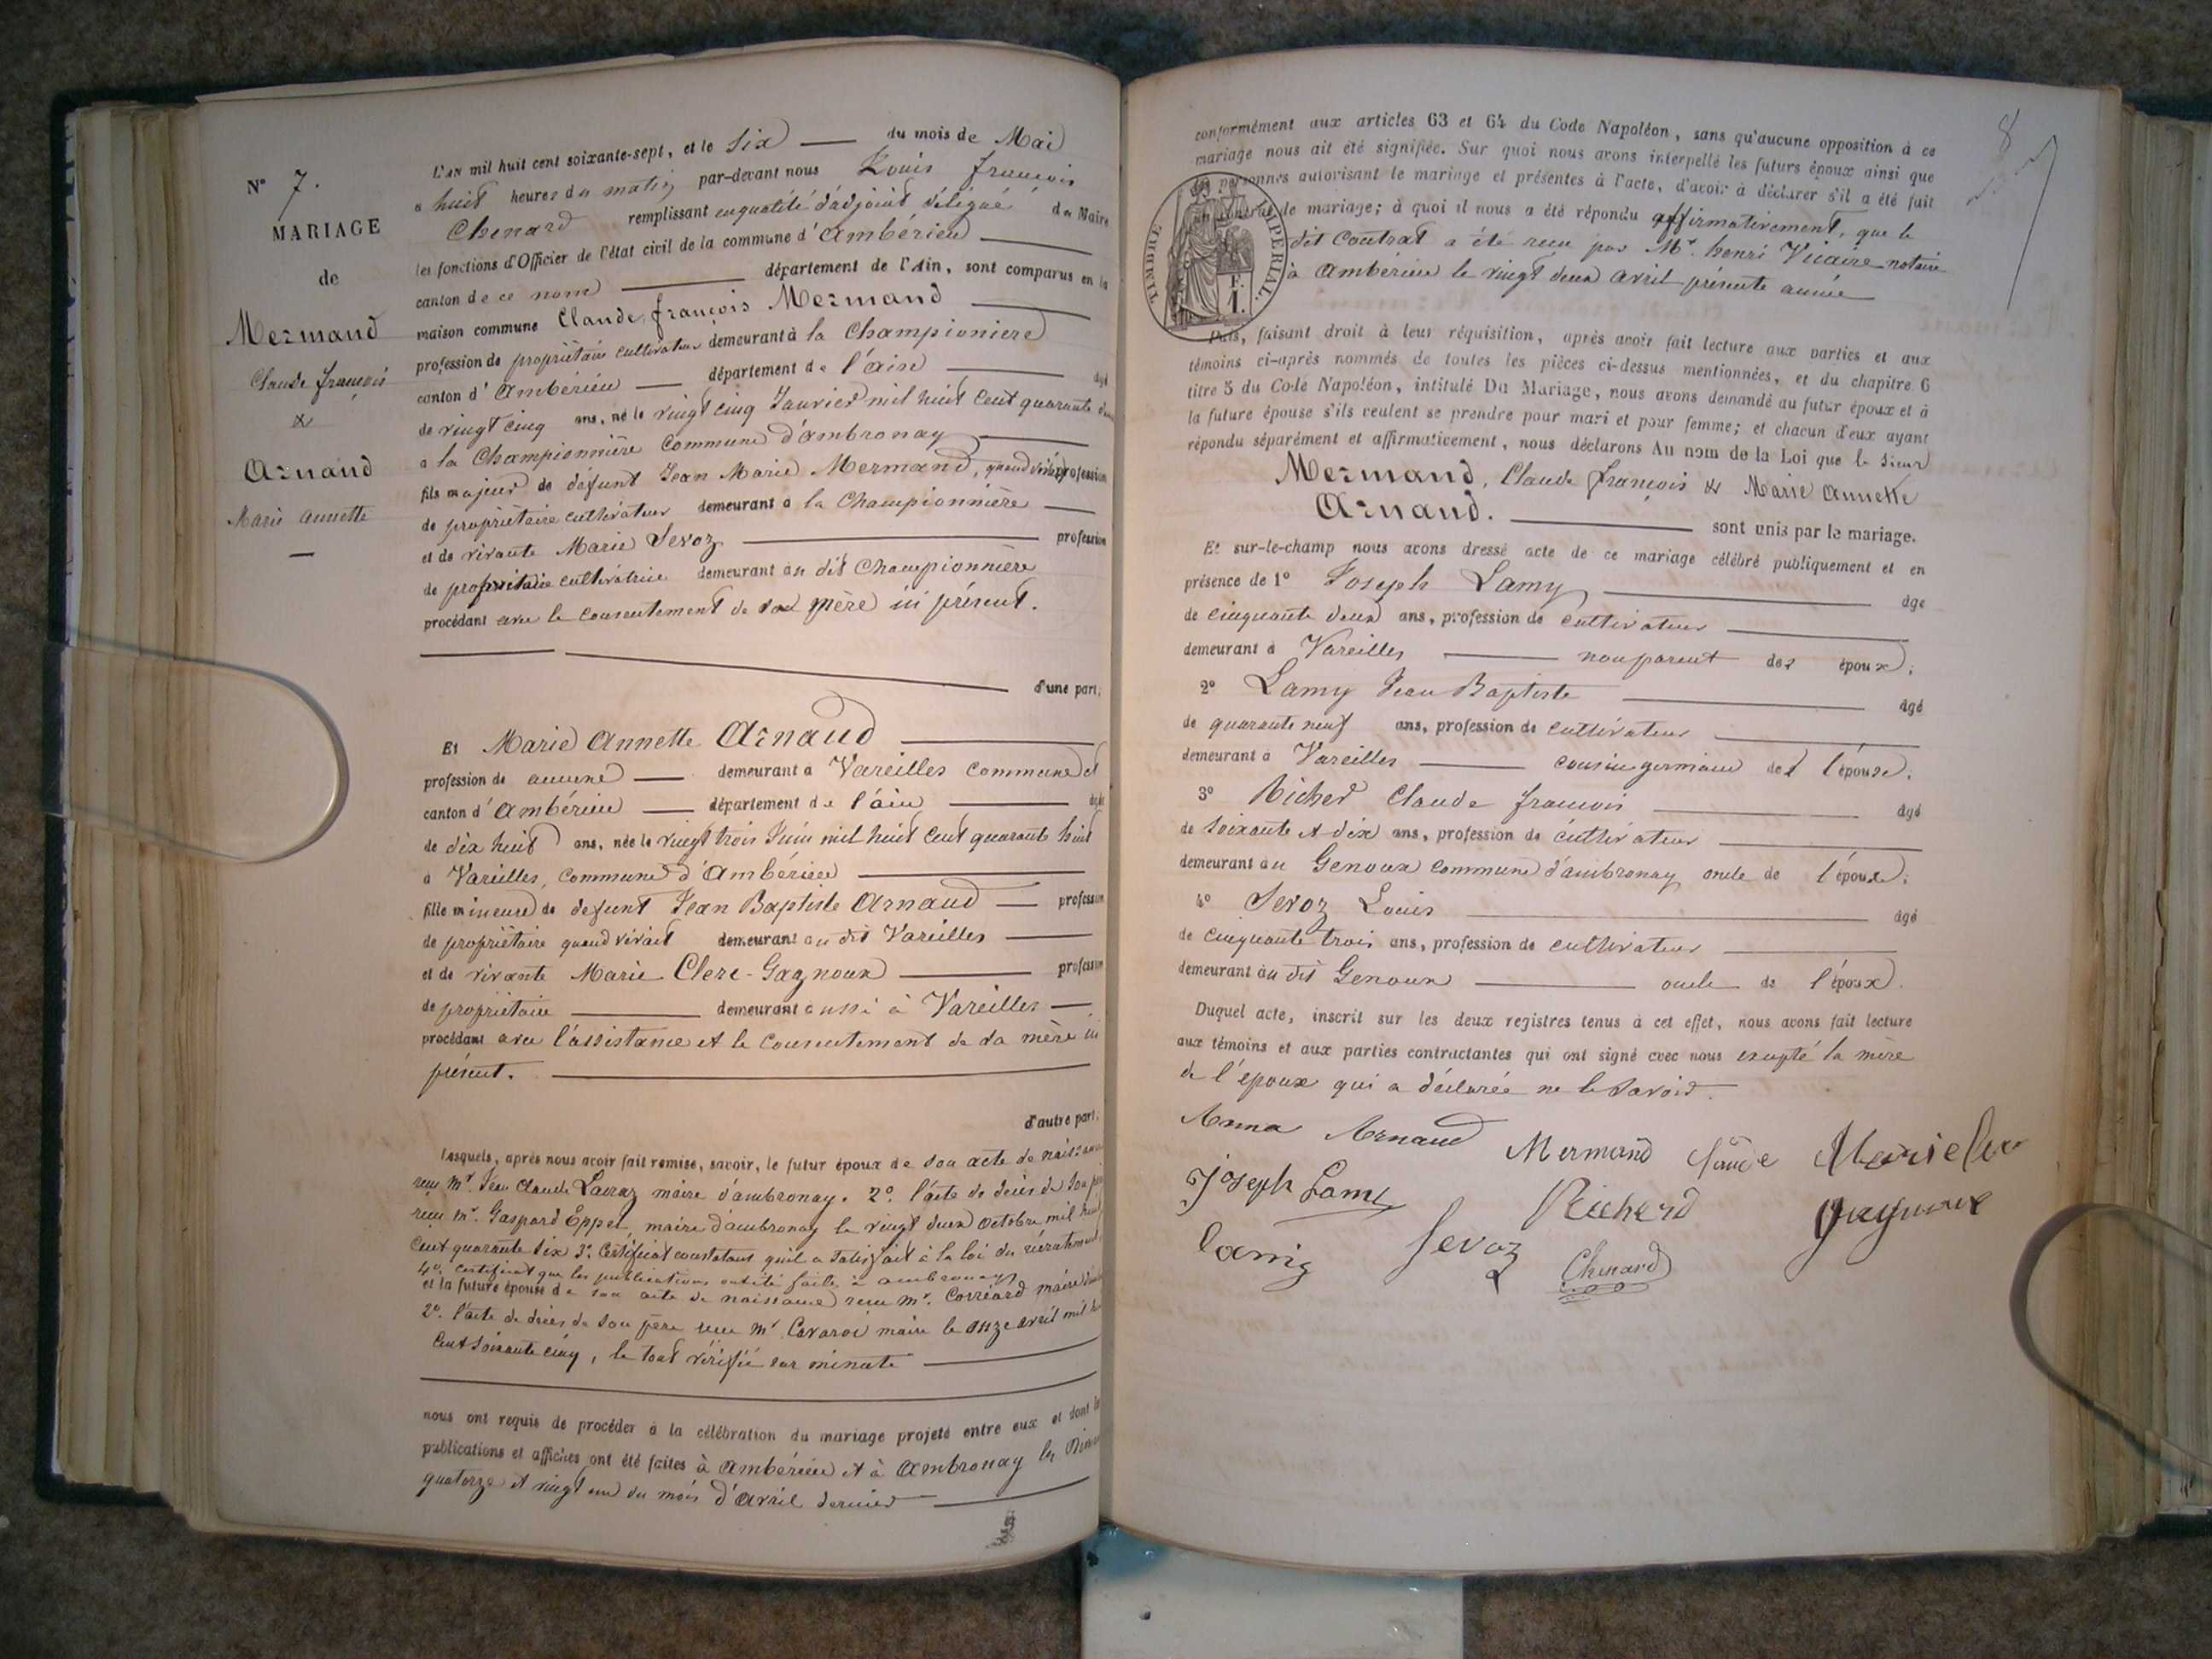 N° 7.
MARIAGE
de
Mermand
Claude françois
&
Arnand
Marie annette
L'AN mil huit cent soixante-sept, et le Six du mois de Mai
a huit heures du matin par-devant nous Louis françois
Chenard remplissant en qualité d'adjoint délégué du Maire
les fonctions d'Officier de l'état civil de la commune d'Ambérieu
canton de ce nom département de l'Ain, sont comparus en la
maison commune Claude françois Mermand
profession de propriétaire cultivateur demeurant à la Championiere
canton d'Ambérieu département de l'ain agé
de vingt cinq ans, né le vingt cinq Janvier mil huit Cent quarante deux
a la Championnière Commune d'ambronay
fils majeur de défunt Jean Marie Mermand, quand vivait profession
de propriétaire cultivateur demeurant à la Championnière
et de vivante Marie Sevoz profession
de propriétaire cultivatrice demeurant au dit Championnière
procédant avec le consentement de sa mère ici présent.
d'une part;
Et Marie Annette Arnaud
profession de aucune demeurant à Vareilles commune et
canton d'Ambérieu département de l'ain agée
de dix huit ans, née le vingt trois Juin mil huit Cent quarante huit
à Vareilles, commune d'Ambérieu
fille mineure de defunt Jean Baptiste Arnaud profession
de propriétaire quand vivait demeurant au dit Vareilles
et de vivante Marie Clerc-Gagnoux profession
de propriétaire demeurant aussi à Vareilles
procédant avec l'assistance et le consentement de sa mère ici
présent.
d'autre part;
Lesquels, après nous avoir fait remise, savoir, le futur époux de son acte de naissance
reçu Mr. Jean Claude maire d'ambronay. 2° l'acte de décès de son père
reçu mr. Gaspard Eppel, maire d'ambronay le vingt deux octobre mil huit
Cent quarante six 3° Certificat constatant qu'il a satisfait à la loi du recrutement
4° Certificat que les publications ont été faite à ambronay
et la future épouse de son acte de naissance reçu mr. Corréard maire
2° l'acte de décès de son père reçu mr Cavaroc maire le onze avril mil huit
Cent soixante cinq, le tout vérifié sur minute
nous ont requis de procéder à la célébration du mariage projeté entre eux et dont les
publications et affiches ont été faites à Ambérieu et à Ambronay les Dimanches
quatorze et vingt un du mois d'Avril dernier
8
conformément aux articles 63 et 64 du Code Napoléon, sans qu'aucune opposition à ce
mariage nous ait été signifiée. Sur quoi nous avons interpellé les futurs époux ainsi que
les personnes autorisant le mariage et présentes à l'acte, d'avoir à déclarer s'il a été fait
un contrat de mariage; à quoi il nous a été répondu affirmativement, que le
dit Contrat a été reçu par Mr. henri Vicaire notaire
à Ambérieu le vingt deux avril présente année
TIMBRE IMPERIAL.
1 F.
Puis, faisant droit à leur réquisition, après avoir fait lecture aux parties et aux
témoins ci-après nommés de toutes les pièces ci-dessus mentionnées, et du chapitre 6
titre 5 du Code Napoléon, intitulé Du Mariage, nous avons demandé au futur époux et à
la future épouse s'ils veulent se prendre pour mari et pour femme; et chacun d'eux ayant
répondu séparément et affirmativement, nous déclarons Au nom de la Loi que le Sieur
Mermand, Claude françois & Marie Annette
Arnaud. sont unis par le mariage.
Et sur-le-champ nous avons dressé acte de ce mariage célébré publiquement et en
présence de 1° Joseph Lamy age
de cinquante deux ans, profession de cultivateur
demeurant à Vareilles non parent des époux;
2° Lamy Jean Baptiste agé
de quarante neuf ans, profession de cultivateur
demeurant à Vareilles cousin germain de l'épouse;
3° Richer Claude francois agé
de soixante et dix ans, profession de cultivateur
demeurant au Genoux commune d'ambronay oncle de l'épouse;
4° Sevoz Louis agé
de cinquante trois ans, profession de cultivateur
demeurant au dit Genoux oncle de l'époux.
Duquel acte, inscrit sur les deux registres tenus à cet effet, nous avons fait lecture
aux témoins et aux parties contractantes qui ont signé avec nous excepté la mère
de l'époux qui a déclarée ne le savoir.
Anna Arnaud Mermand Claude Marie Cler
Joseph Lamy Richerd gagnoux
Lamy Sevoz Chenard